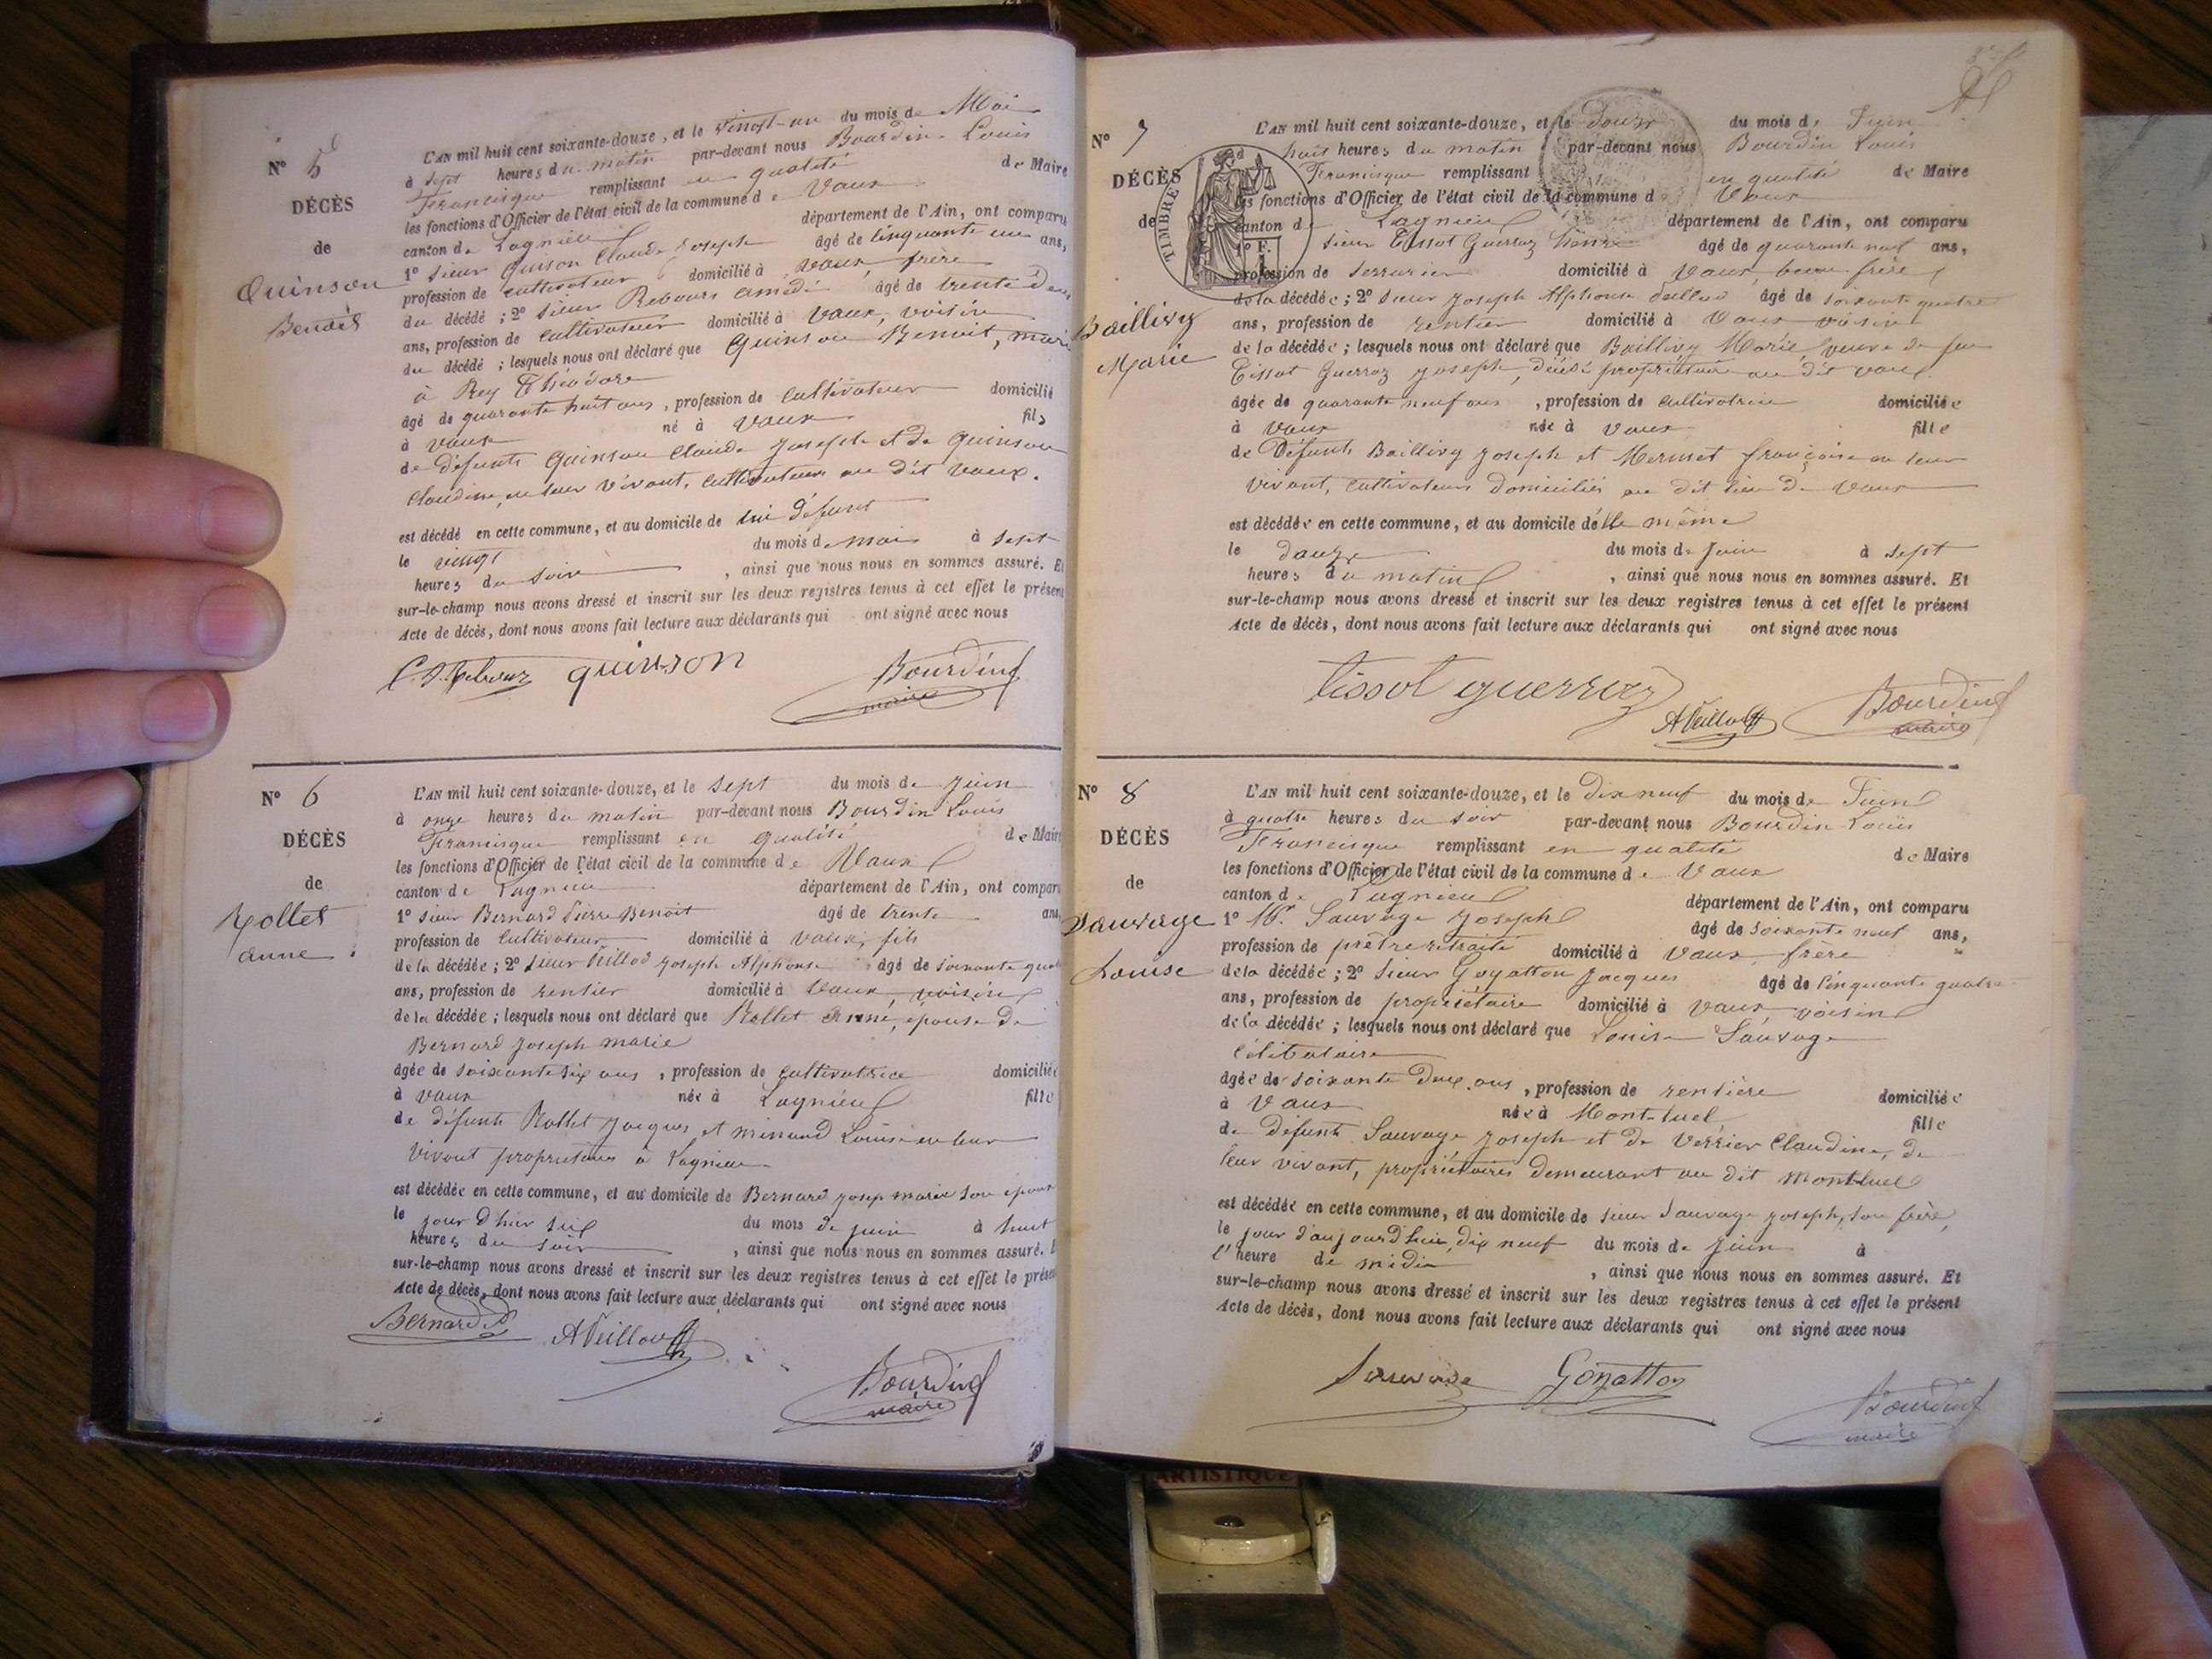 N° 5
DÉCÈS
de
Quinson
Benoit
L'AN mil huit cent soixante-douze, et le vingt-un du mois de Mai
à sept heures du matin par-devant nous Bourdin Louis
Francisque remplissant en qualité de Maire
les fonctions d'Officier de l'état civil de la commune de Vaux
canton de Lagnieu département de l'Ain, ont comparu
1° sieur Quinson Claude Joseph âgé de cinquante un ans,
profession de cultivateur domicilié à Vaux, frère
du décédé ; 2° sieur Rebours âgé de trente deux
ans, profession de cultivateur domicilié à Vaux, voisin
du décédé ; lesquels nous ont déclaré que Quinson Benoit, mari
à Rey Théodore
âgé de quarante huit ans, profession de cultivateur domicilié
à Vaux né à Vaux fils
de défunts Quinson Claude Joseph et de Quinson
Claudine, en leur vivant, cultivateurs au dit Vaux.
est décédé en cette commune, et au domicile de lui défunt
le vingt du mois de mai à sept
heures du soir, ainsi que nous nous en sommes assuré. Et
sur-le-champ nous avons dressé et inscrit sur les deux registres tenus à cet effet le présent
Acte de décès, dont nous avons fait lecture aux déclarants qui ont signé avec nous
quinson Bourdin
maire
N° 6
DÉCÈS
de
Rollet
anne
L'AN mil huit cent soixante-douze, et le sept du mois de Juin
à onze heures du matin par-devant nous Bourdin Louis
Francisque remplissant en qualité de Maire
les fonctions d'Officier de l'état civil de la commune de Vaux
canton de Lagnieu département de l'Ain, ont comparu
1° sieur Bernard Pierre Benoit âgé de trente ans
profession de cultivateur domicilié à Vaux, fils
de la décédée ; 2° sieur Veillod Joseph Alphonse âgé de soixante quatre
ans, profession de rentier domicilié à Vaux, voisin
de la décédée ; lesquels nous ont déclaré que Rollet Anne, épouse de
Bernard Joseph marie
âgée de soixante six ans, profession de cultivatrice domiciliée
à Vaux née à Lagnieu fille
de défunts Rollet Jacques et Louise en leur
vivant propriétaires à Lagnieu
est décédée en cette commune, et au domicile de Bernard Josep marie son epoux
le jour d'hier six du mois de juin à huit
heures du soir, ainsi que nous nous en sommes assuré.
sur-le-champ nous avons dressé et inscrit sur les deux registres tenus à cet effet le présent
Acte de décès, dont nous avons fait lecture aux déclarants qui ont signé avec nous
Bernard P AVeillod
Bourdin
maire
N° 7
DÉCÈS
de
Baillivy
Marie
TIMBRE
1 F.
L'AN mil huit cent soixante-douze, et le douze du mois de Juin
huit heures du matin par-devant nous Bourdin Louis
Francisque remplissant en qualité de Maire
les fonctions d'Officier de l'état civil de la commune de Vaux
canton de Lagnieu département de l'Ain, ont comparu
sieur Tissot Guerraz âgé de quarante neuf ans,
profession de serrurier domicilié à Vaux, beau frère
de la décédée ; 2° sieur Joseph Alphonse Veillod âgé de soixante quatre
ans, profession de rentier domicilié à Vaux voisin
de la décédée ; lesquels nous ont déclaré que Baillivy Marie, veuve de feu
Tissot Guerraz Joseph, décédé propriétaire au dit Vaux.
âgée de quarante neuf ans, profession de cultivatrice domiciliée
à Vaux née à Vaux fille
de Défunts Baillivy Joseph et Mermet françoise en leur
vivant, cultivateurs domiciliés au dit lieu de Vaux
est décédée en cette commune, et au domicile d'elle même
le douze du mois de Juin à sept
heures du matin, ainsi que nous nous en sommes assuré. Et
sur-le-champ nous avons dressé et inscrit sur les deux registres tenus à cet effet le présent
Acte de décès, dont nous avons fait lecture aux déclarants qui ont signé avec nous
tissot guerraz
AVeillod Bourdin
maire
N° 8
DÉCÈS
de
Sauvage
Louise
L'AN mil huit cent soixante-douze, et le dix neuf du mois de Juin
à quatre heures du soir par-devant nous Bourdin Louis
Francisque remplissant en qualité de Maire
les fonctions d'Officier de l'état civil de la commune de Vaux
canton de Lagnieu département de l'Ain, ont comparu
1° Mr. Sauvage Joseph âgé de soixante neuf ans,
profession de prêtre retraité domicilié à Vaux, frère
de la décédée ; 2° sieur Goyatton Jacques âgé de cinquante quatre
ans, profession de propriétaire domicilié à Vaux, voisin
de la décédée ; lesquels nous ont déclaré que Louise Sauvage
célibataire
âgée de soixante deux ans, profession de rentière domiciliée
à Vaux née à Mont-luel fille
de défunts Sauvage Joseph et de Verrier Claudine, de
leur vivant, propriétaires demeurant au dit Montluel
est décédée en cette commune, et au domicile de sieur Sauvage Joseph, son frère,
le jour d'aujourd'hui, dix neuf du mois de Juin à
l'heure de midi, ainsi que nous nous en sommes assuré. Et
sur-le-champ nous avons dressé et inscrit sur les deux registres tenus à cet effet le présent
Acte de décès, dont nous avons fait lecture aux déclarants qui ont signé avec nous
Sauvage Goyatton
Bourdin
maire
ARTISTIQUE